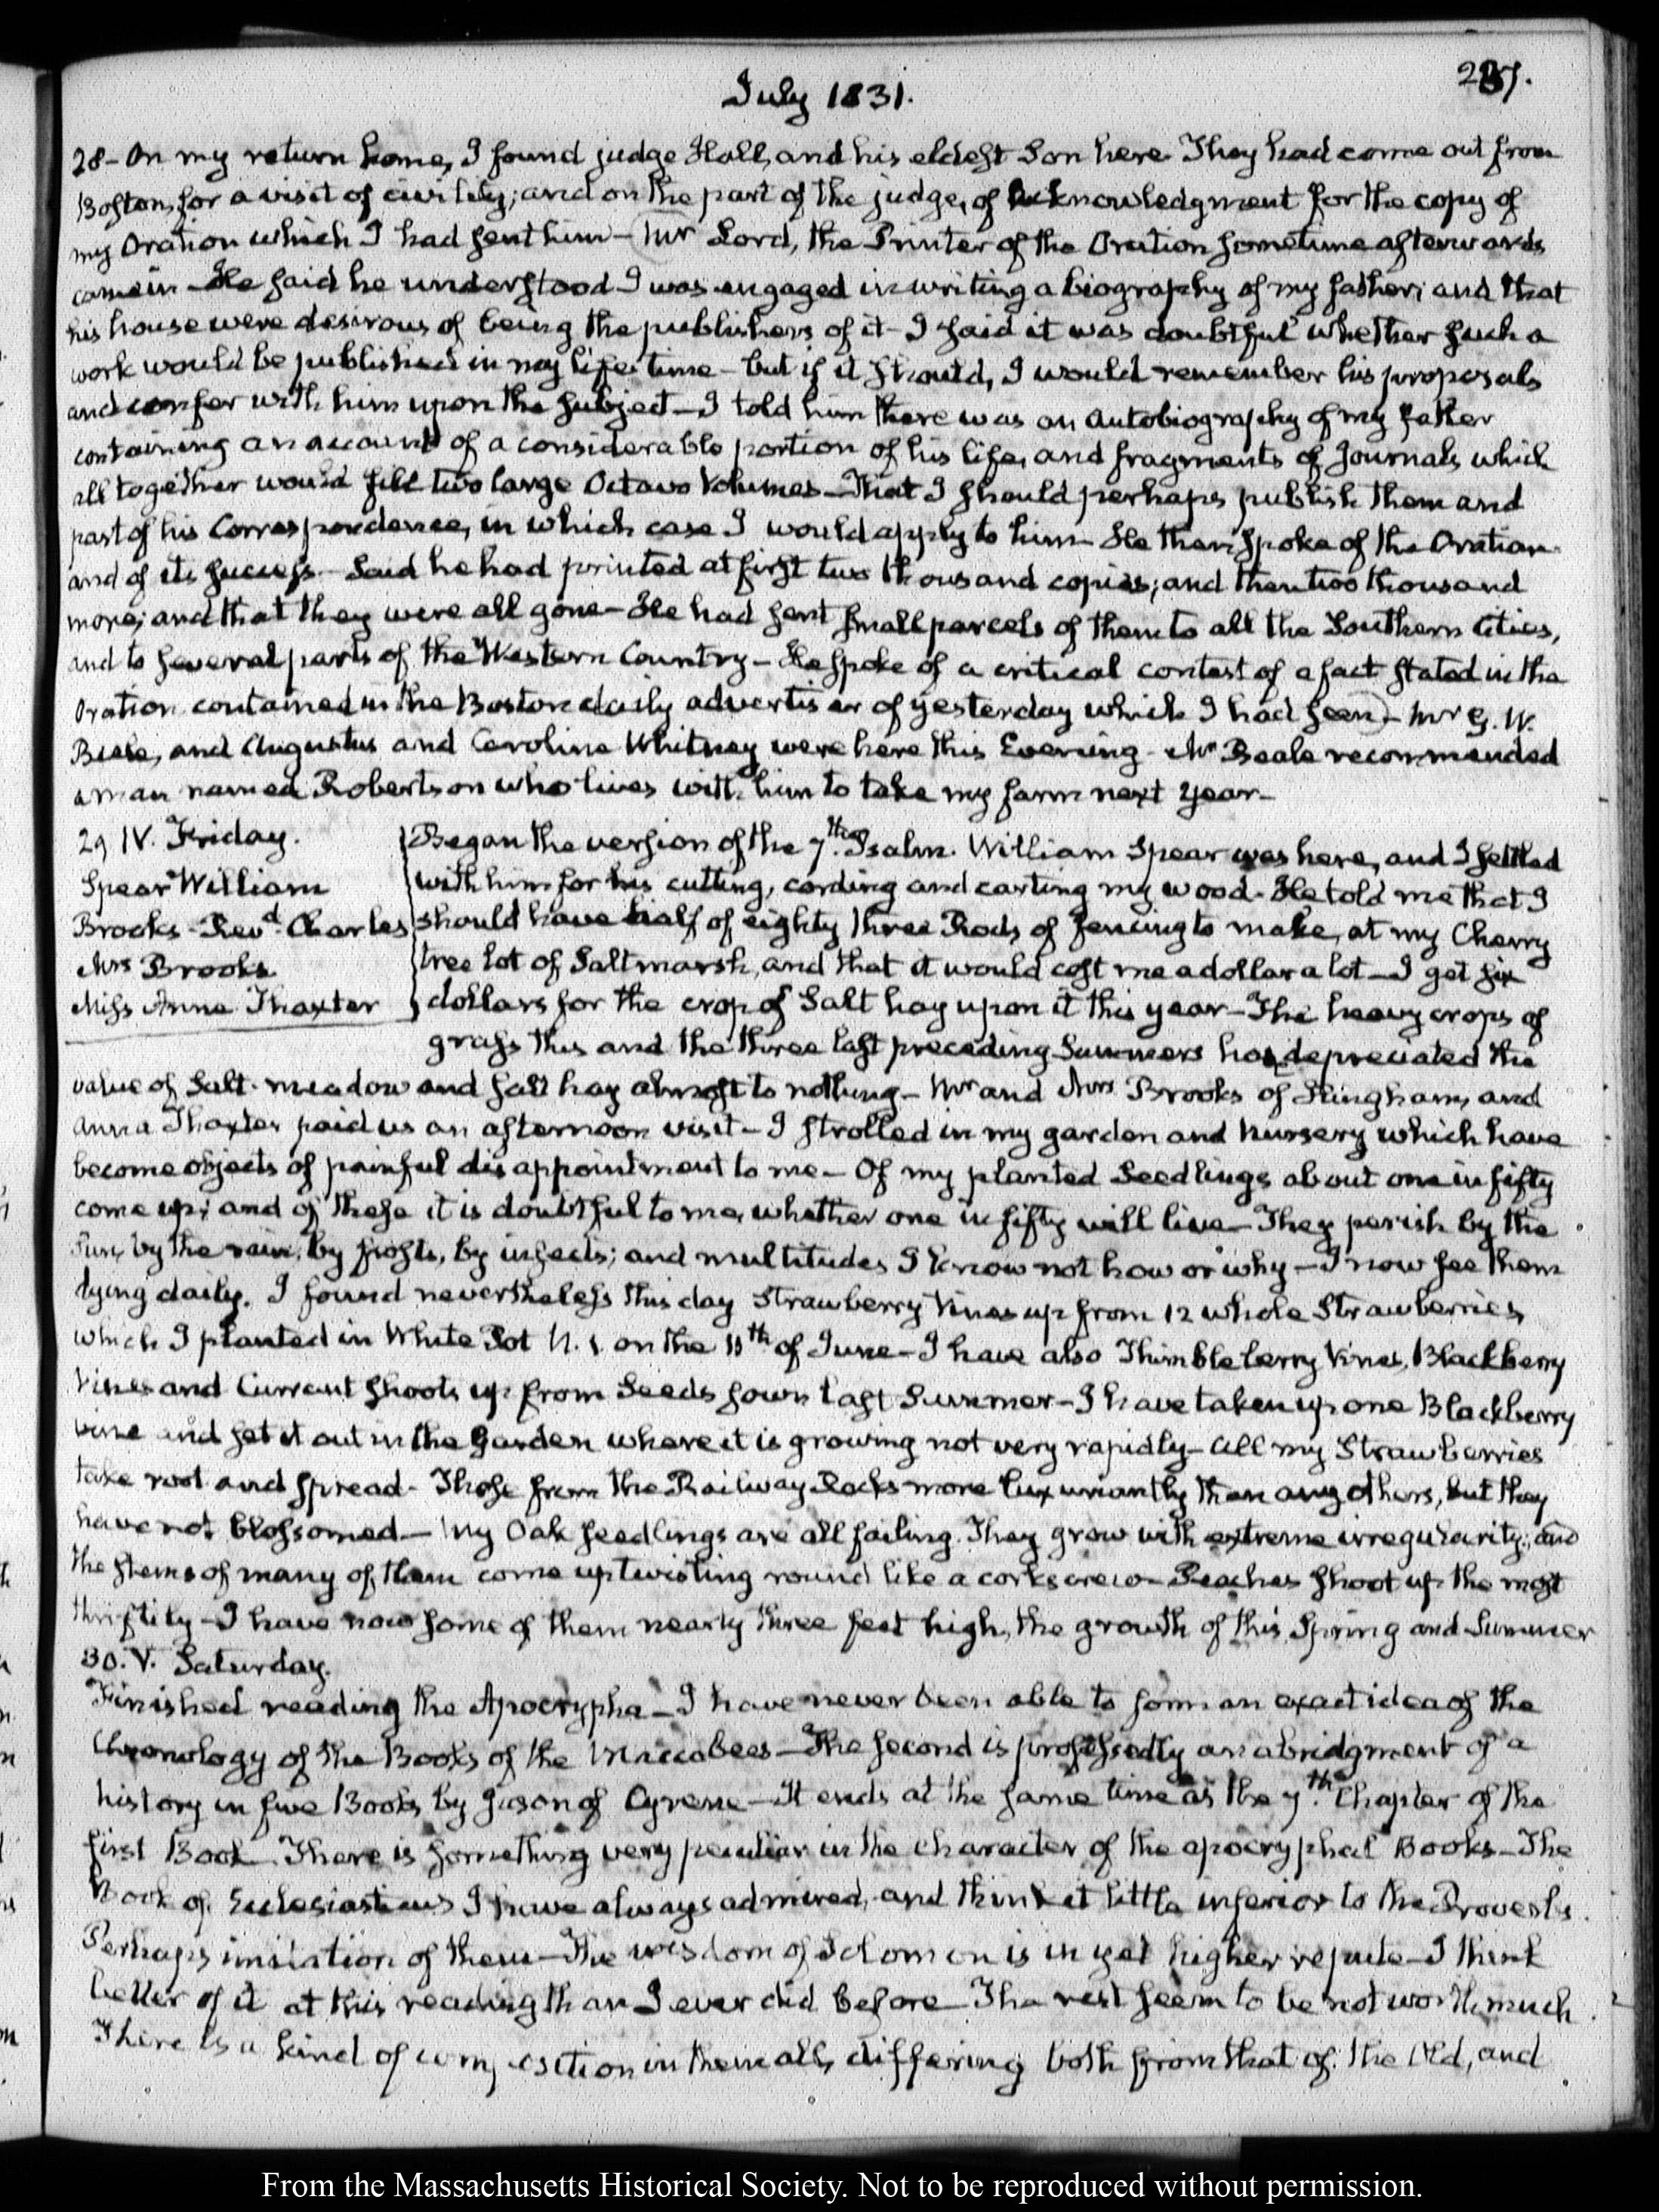 237.
July 1831.
28 - On my return home, I found judge Hall, and his eldest Son here. They had come out from
Boston, for a visit of civility; and on the part of the judge, of acknowledgment for the copy of
my Oration which I had sent him - Mr Lord, the Printer of the Oration sometime afterwards
came in - He said he understood I was engaged in writing a biography of my father; and that
his house were desirous of being the publishers of it - I said it was doubtful whether such a
work would be published in my life time - but if it should, I would remember his proposals
and confer with him upon the subject - I told him there was an Autobiography of my father
containing an account of a considerable portion of his life, and fragments of Journals which
all together would fill two large Octavo Volumes - That I should perhaps publish them and
part of his Correspondence, in which case I would apply to him - He then spoke of the Oration
and of its success - Said he had printed at first two thousand copies; and then two thousand
more; and that they were all gone - He had sent small parcels of them to all the Southern Cities,
and to several parts of the Western Country - He spoke of a critical contest of a fact stated in the
Oration contained in the Boston daily advertiser of yesterday which I had seen - Mr G. W.
Beale, and Augustus and Caroline Whitney were here this Evening - Mr Beale recommended
a man named Robertson who lives with him to take my farm next year -
29 IV. Friday.
Spear William
Brooks - Revd. Charles
Mrs Brooks
Miss Anna Thaxter
Began the version of the 7th. Psalm. William Spear was here, and I settled
with him for his cutting, cording and carting my wood - He told me that I
should have half of eighty three Rods of fencing to make, at my Cherry
tree lot of Saltmarsh, and that it would cost me a dollar a lot - I get six
dollars for the crop of Salt hay upon it this year - The heavy crops of
grass this and the three last preceding Summers has depreciated the
value of Salt meadow and salt hay almost to nothing - Mr and Mrs Brooks of Hingham, and
Anna Thaxter paid us an afternoon visit - I strolled in my garden and nursery which have
become objects of painful disappointment to me - Of my planted Seedlings about one in fifty
come up; and of these it is doubtful to me, whether one in fifty will live - They perish by the
Sun, by the rain, by frosts, by insects; and multitudes I know not how or why - I now see them
dying daily. I found nevertheless this day Strawberry Vines up from 12 whole Strawberries
which I planted in White Pot N. 1. on the 11th of June - I have also Thimbleberry Vines, Blackberry
Vines and Currant shoots up from Seeds sown last Summer - I have taken up one Blackberry
vine and set it out in the Garden where it is growing not very rapidly - All my Strawberries
take root and spread - Those from the Railway Rocks more luxuriantly than any others, but they
have not blossomed - My Oak seedlings are all failing. They grow with extreme irregularity; and
the stems of many of them come up twisting round like a corkscrew - Peaches shoot up the most
thriftily - I have now some of them nearly three feet high, the growth of this Spring and Summer
30. V. Saturday.
Finished reading the Apocrypha - I have never been able to form an exact idea of the
Chronology of the Books of the Maccabees - The second is professedly an abridgment of a
history in five Books by Jason of Cyrene - It ends at the same time as the 7th. Chapter of the
first Book. There is something very peculiar in the character of the apocryphal Books - The
Book of Ecclesiasticus I have always admired, and think it little inferior to the Proverbs.
Perhaps imitation of them - The wisdom of Solomon is in yet higher repute - I think
better of it at this reading than I ever did before - The rest seem to be not worth much.
There is a kind of composition in them all, differing both from that of the Old, and
From the Massachusetts Historical Society. Not to be reproduced without permission.